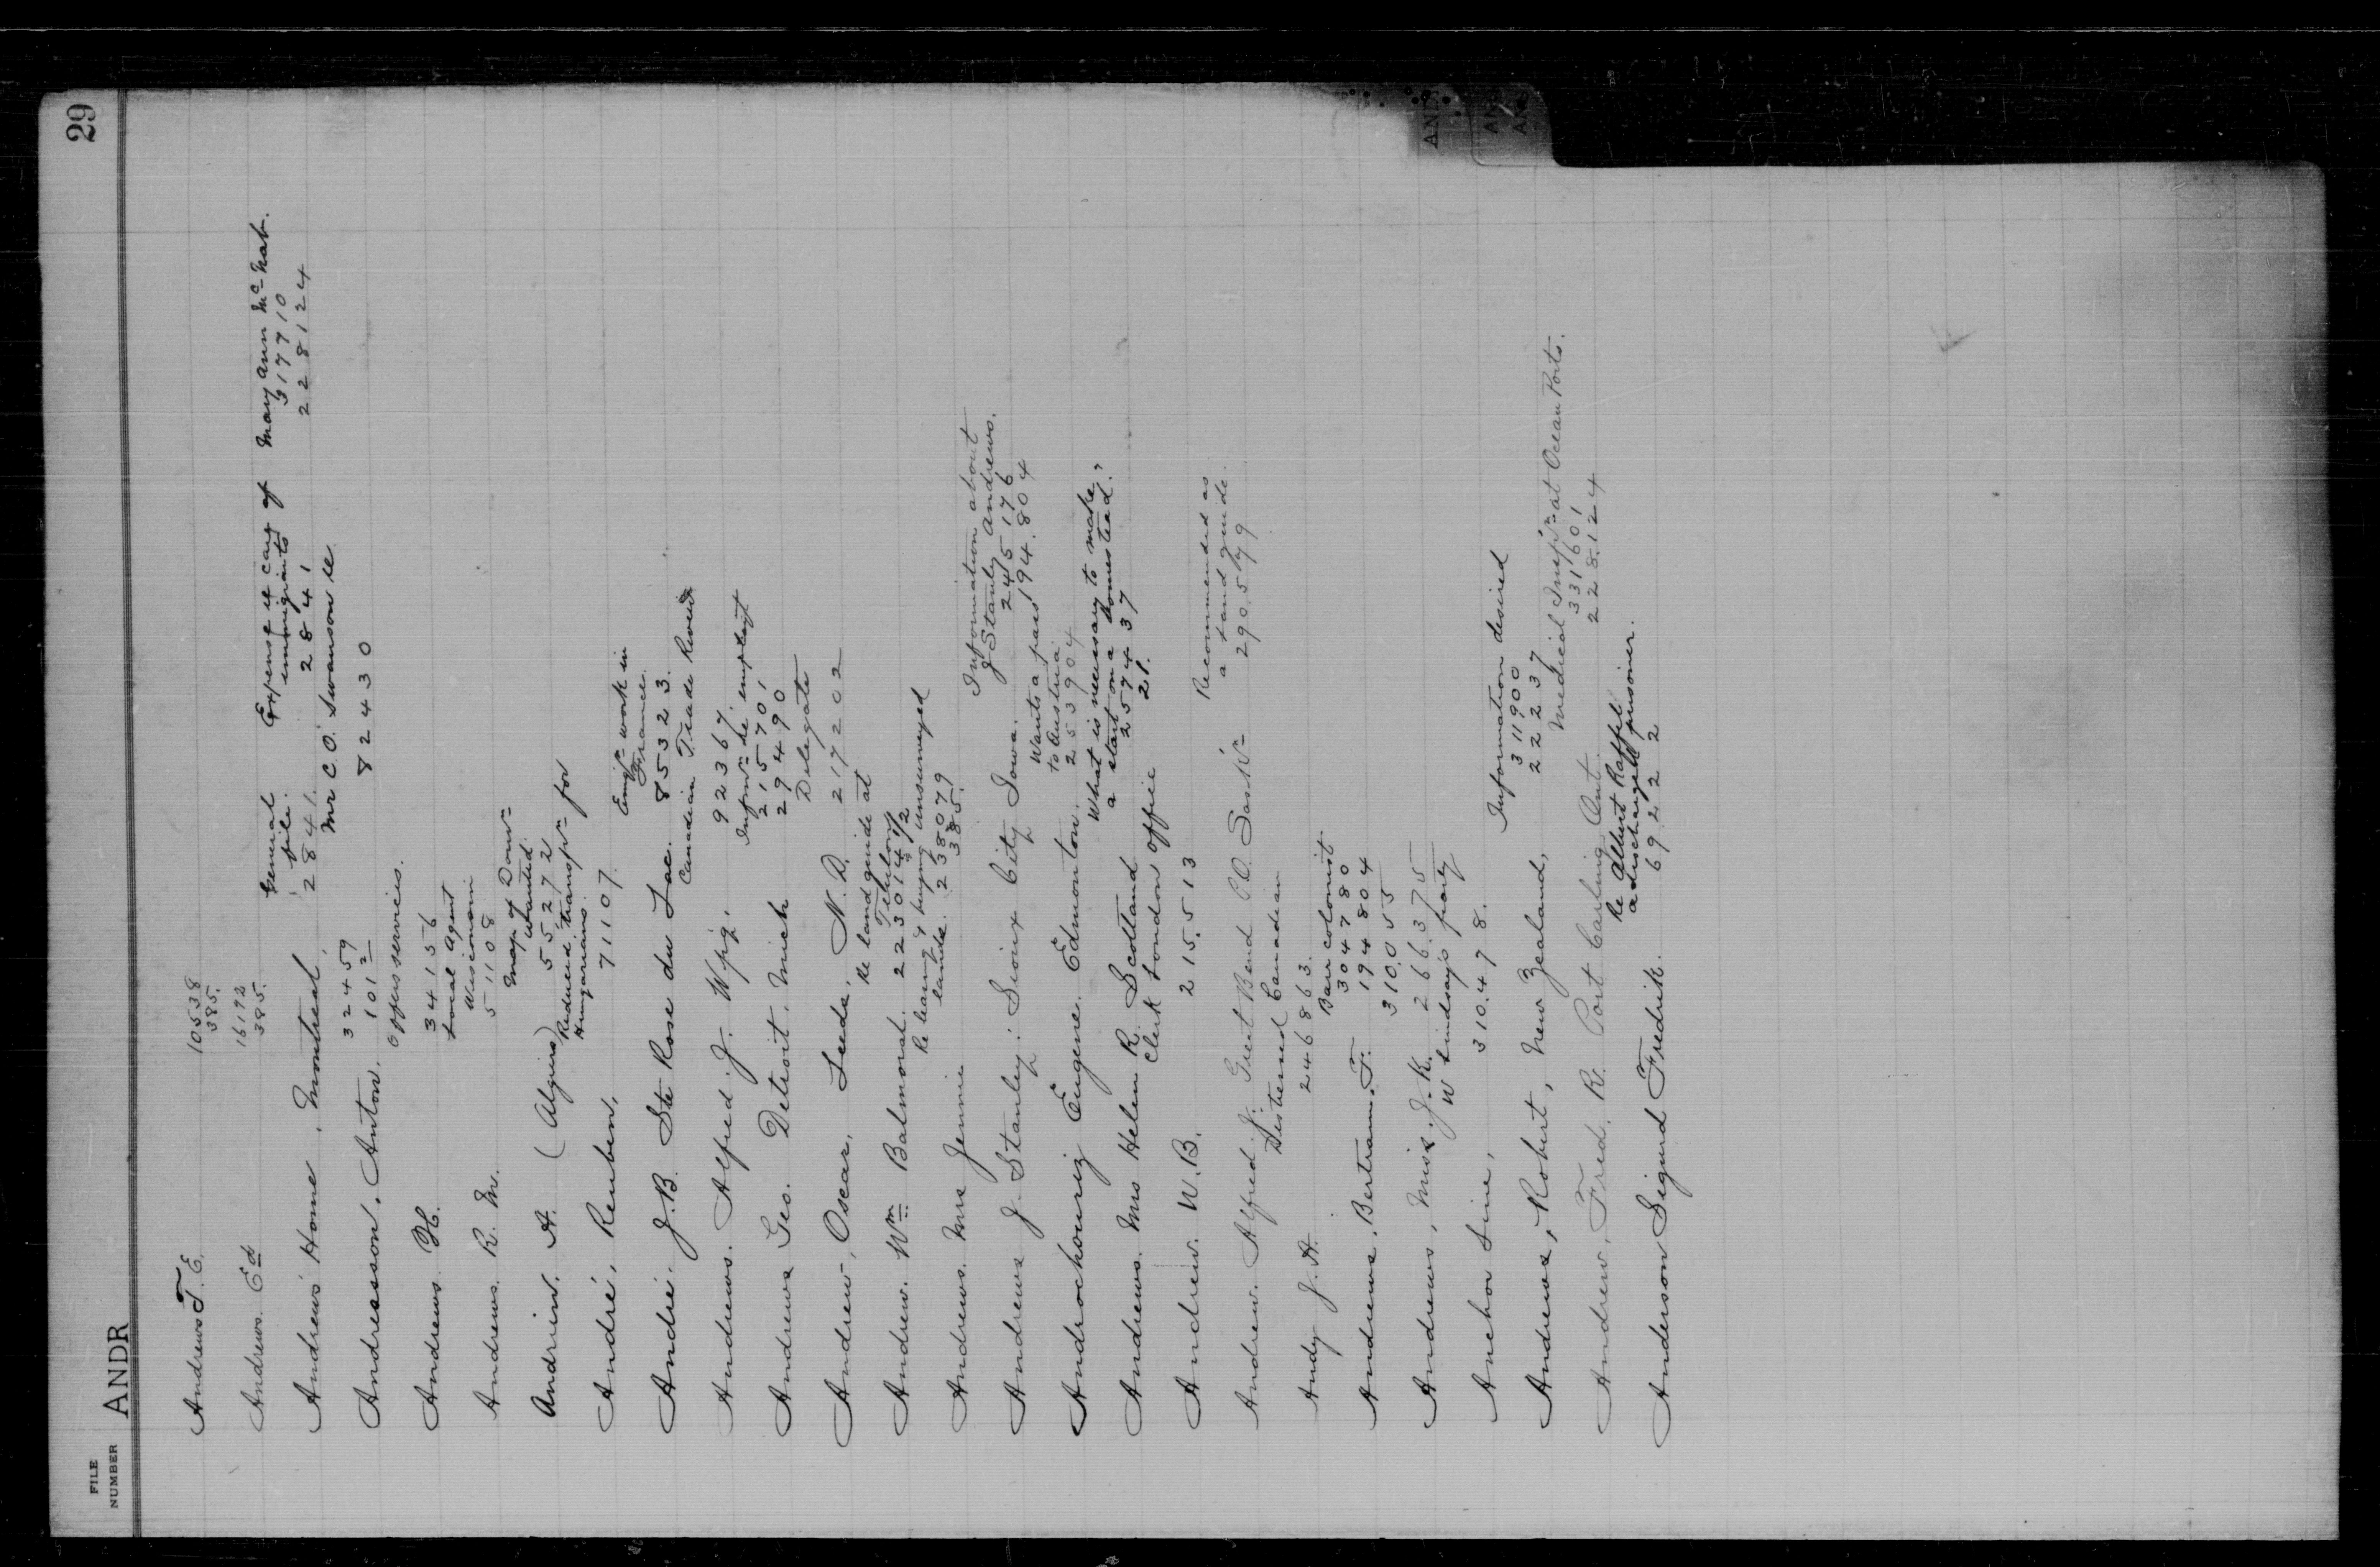 29
FILE NUMBER
ANDR
Andrews T. E. 10538
385.
Andrews. Ed 16192
385.
Andrews Home, Montreal. General file. 2841. Expense & care of immigrants 2841 Mary Ann McNab. 317710
228124
Mr C.O. Swanson re
82430
Andresson, Anton. 32459
101 2
Offers services.
Andrews. H. 34156
Local Agent
Wisconsin
Andrews. R. M. 51108
Map of Domn wanted
Andrien. A. (Algiers) 55272
Reduced transpn for
Hungarians.
André, Reuben, 71107.
Emign work in
France.
André. J.B. Ste Rose du Lac. 85323.
Canadian Trade Review
Andrews. Alfred J. Wpg. 92367.
Infmn re employt
215701
Andrews Geo. Detroit. Mich 294490
Delegate
Andrew, Oscar, Leeds, N.D. 217202
Re land guide at
Andrew. Wm Balmoral. 223014 1/2
Re leasing & buying unsurveyed
lands. 238079
385.
Andrews. Mrs Jennie
Information about
J Stanley Andrews.
Andrews J. Stanley: Sioux City Iowa. 245176
Wants a pass 194.804
to Austria.
Androchowiz Eugene. Edmonton. 253904
What is necessary to make
a start on a homestead?
Andrews. Mrs Helen R. Scotland 257437
21.
Clerk London office
Andrew. W. B. 215.513
Recommended as
a land guide.
Andrew. Alfred J. Great Bend P.O. Saskn 290.579
Distressed Canadian
Andy J. A. 246863.
Barr colonist
304780
Andrews, Bertram, F. 194804
310,055
Andrews, Miss. J. K. 266.375
W Lindsay's party
Anchor Line, 310.478.
Information desired
311900
Andrews, Robert, New Zealand, 222237
Medical Inspn at Ocean Ports.
331601
Andrew, Fred. R. Port Carling Ont. 228.124
Re Albert Rappl
a discharged prisoner.
Anderson Sigurd Fredrik. 69222